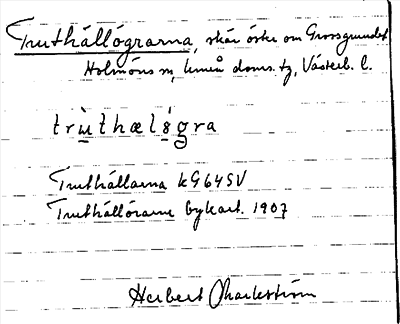 Truthällögrarna, skär öster om Grossgrundet
Holmöns sn, Umeå doms. tg, Västerb. l.
trùthælśgra
Truthällarna kG64SV
Truthällörarne bykart. 1907
Herbert Markström